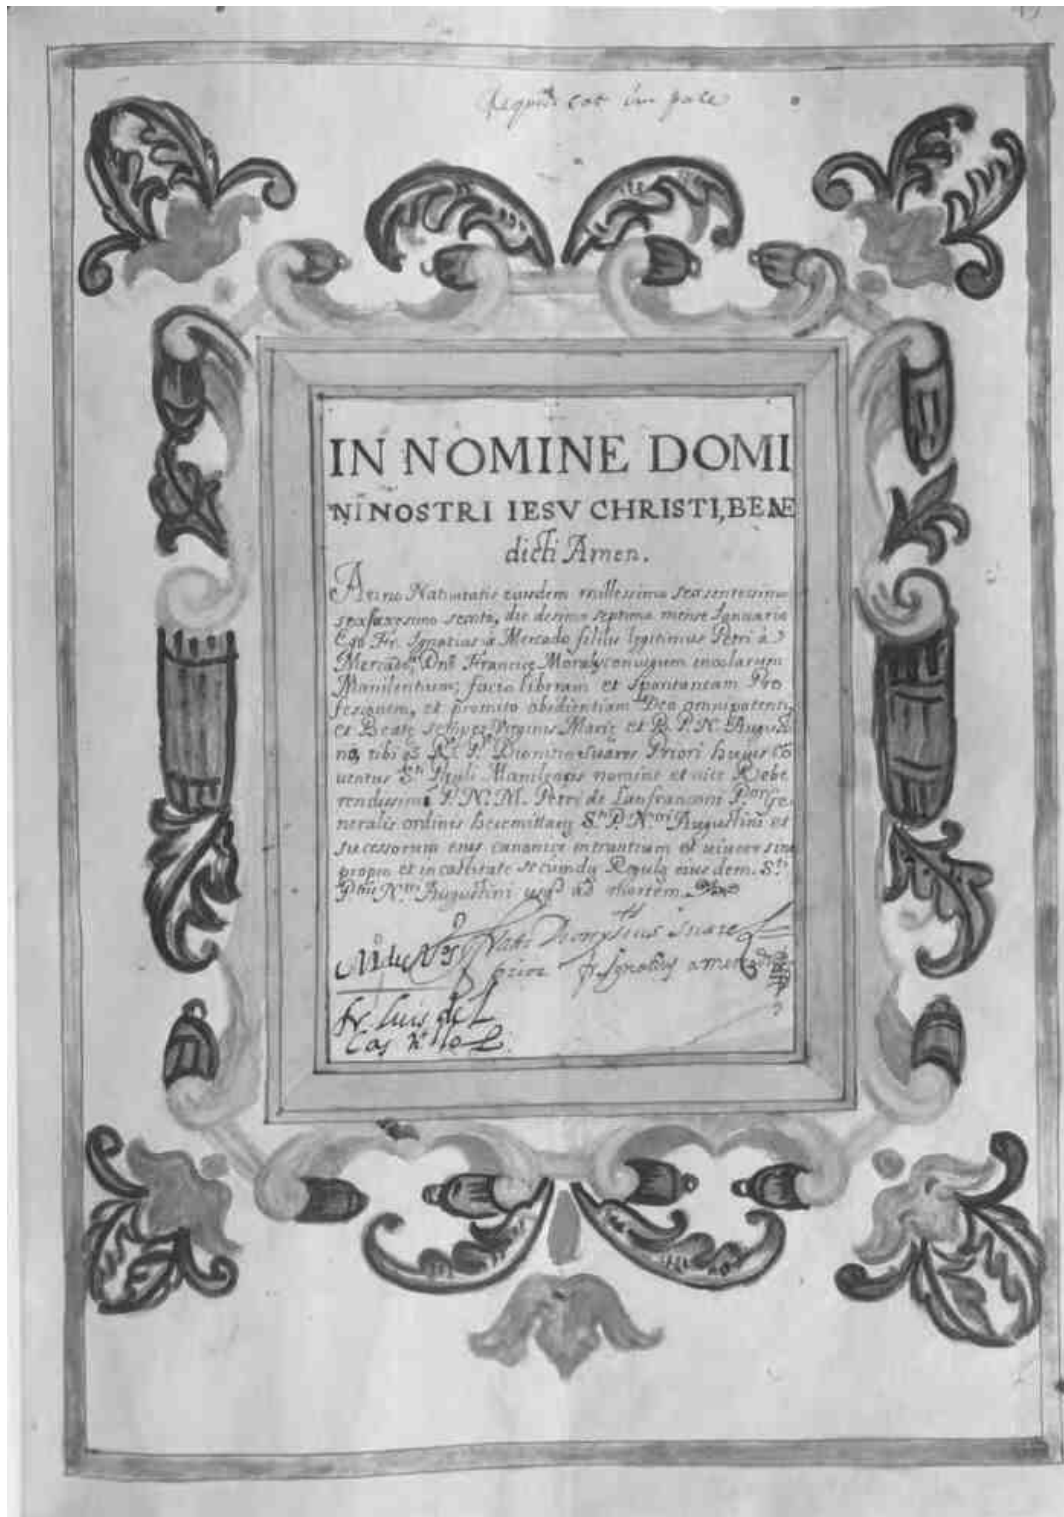 IN NOMINE DOMI
NI NOSTRI IESV CHRISTI, BENE
dicti Amen.
Anno Natiuitatis eiusdem millessimo sexsentessimo
sexsaxesimo sexto, die desima septima mense Ianuario
Ego Fr. Ignatius à Mercado filiu legitimus Petri à
Mercado, Dnẽ Francice Morales conuigum incolarum
Manilentium; facio liberam et spontaneam Pro
fesionem, et promito obedientiam Deo omnipotenti,
et Beatę semper Virginis Marię et B. P. N. Augusti
no, tibi Dionitio Suares Priori huius Cõ
uentus Sti Pauli Manilensis nomine et uice Rebe
rendissimi P. N. M. Petri de Lanfranconi Ge
neralis ordinis heremittarũ Sti P. Nri Augustini et
sucessorum eius canonice intrantium et uiuere sine
propio et in castitate secundũ Regulã eiusdem Sti
Ptris Nri Augustini usq ad mortem
Frater Dionysius Suarez
prior fr. Ignatius a mercado
fr. luis de